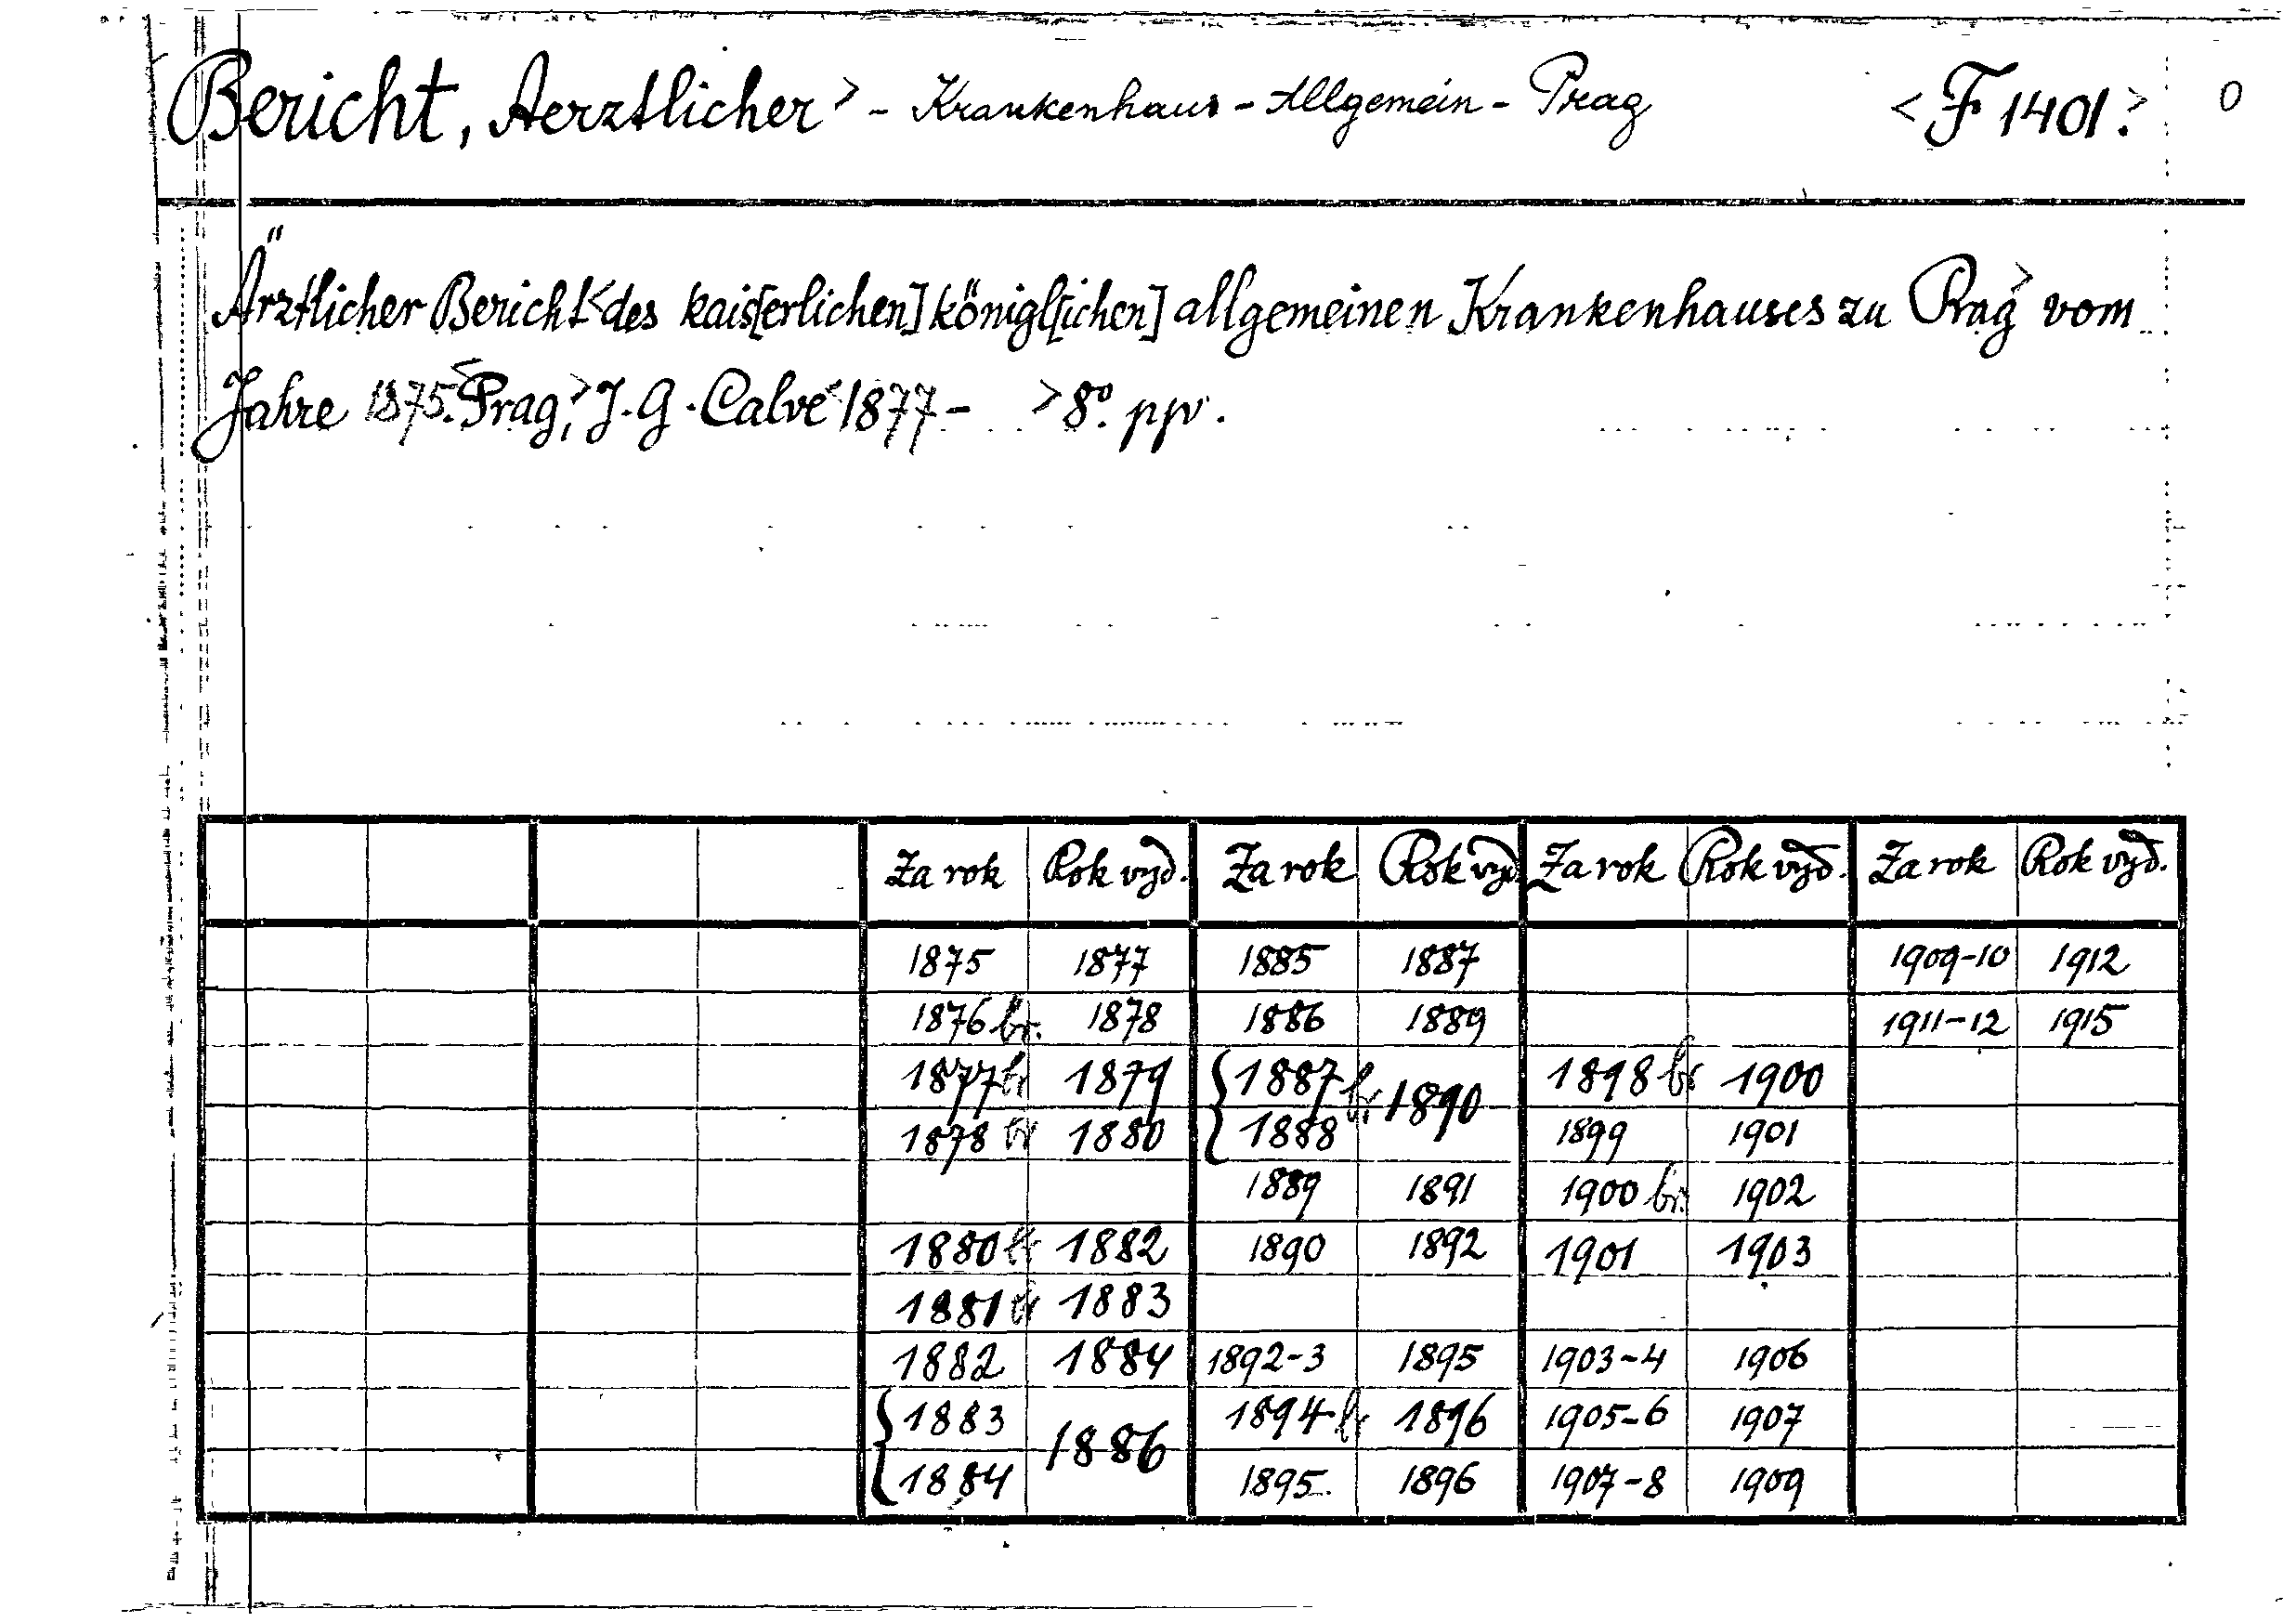 Bericht, Aerztlicher > - Krankenhaus - Allgemein - Prag < F 1401.> 0
Ärztlicher Bericht < des kais[erlichen] königl[ichen] allgemeinen Krankenhauses zu Prag > vom
Jahre 1875. < Prag, > J. G. Calve < 1877 - > 8º. ppv.
Za rok Rok vyd. Za rok Rok vyd. Za rok Rok vyd. Za rok Rok vyd.
1875 1877 1885 1887 1909-10 1912
1876 br. 1878 1886 1889 1911-12 1915
1877 br 1879 { 1887 br 1890 1898 br 1900
1878 br 1880 1888 1899 1901
1889 1891 1900 br. 1902
1880 br 1882 1890 1892 1901 1903
1881 br 1883
1882 1884 1892-3 1895 1903-4 1906
{ 1883 1886 1894 br 1896 1905-6 1907
1884 1895 1896 1907-8 1909